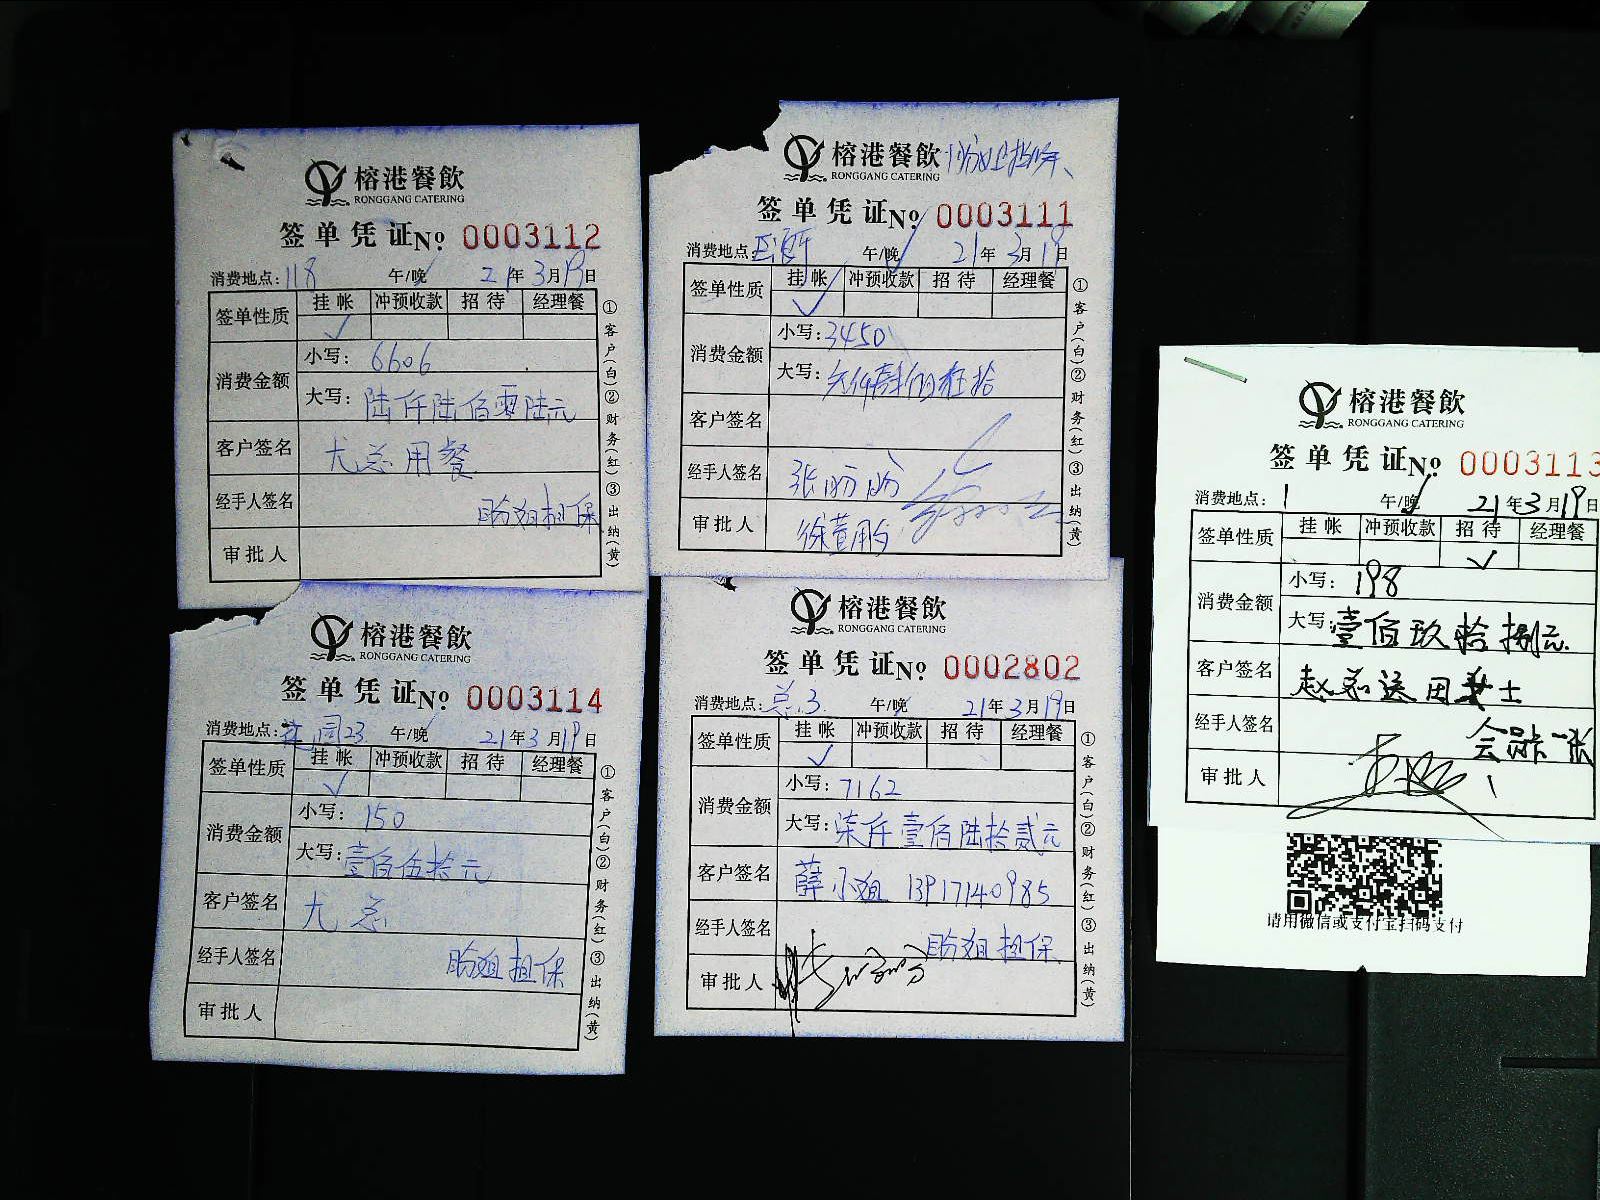 榕港餐飲
RONGGANG CATERING
签单凭证No: 0003112
消费地点: 118 午/晚 21年3月19日
签单性质 挂帐 冲预收款 招待 经理餐
✓
消费金额 小写: 6606
大写: 陆仟陆佰零陆元
客户签名 尤总用餐
经手人签名 盼姐担保
审批人
①客户(白)②财务(红)③出纳(黄)
榕港餐飲 盼姐担保
RONGGANG CATERING
签单凭证No: 0003111
消费地点: 午/晚 21年3月19日
签单性质 挂帐 冲预收款 招待 经理餐
✓
消费金额 小写: 3450
大写:
客户签名
经手人签名 张盼盼
审批人
①客户(白)②财务(红)③出纳(黄)
榕港餐飲
RONGGANG CATERING
签单凭证No: 0003114
消费地点: 23 午/晚 21年3月19日
签单性质 挂帐 冲预收款 招待 经理餐
✓
消费金额 小写: 150
大写: 壹佰伍拾元
客户签名 尤总
经手人签名 盼姐担保
审批人
①客户(白)②财务(红)③出纳(黄)
榕港餐飲
RONGGANG CATERING
签单凭证No: 0002802
消费地点: 总.3 午/晚 21年3月19日
签单性质 挂帐 冲预收款 招待 经理餐
✓
消费金额 小写: 7162
大写: 柒仟壹佰陆拾贰元
客户签名 薛小姐 13917140985
经手人签名 盼姐担保
审批人
①客户(白)②财务(红)③出纳(黄)
榕港餐飲
RONGGANG CATERING
签单凭证No: 0003113
消费地点: 1 午/晚 21年3月19日
签单性质 挂帐 冲预收款 招待 经理餐
✓
消费金额 小写: 198
大写: 壹佰玖拾捌元
客户签名 赵总送田女士
经手人签名 会员卡一张
审批人
请用微信或支付宝扫码支付